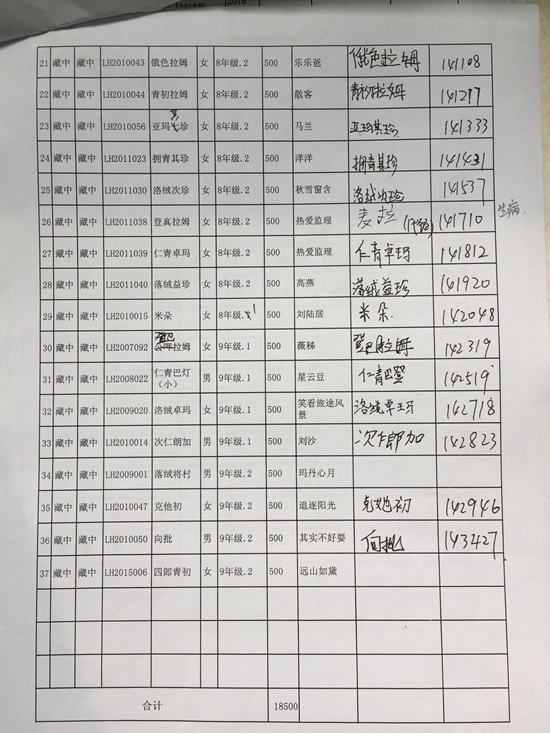 2016
21 藏中 藏中 LH2010043 俄色拉姆 女 8年级.2 500 乐乐爸 俄色拉姆 141108
22 藏中 藏中 LH2010044 青初拉姆 女 8年级.2 500 散客 青初拉姆 141217
23 藏中 藏中 LH2010056 亚玛珍 女 8年级.2 500 马兰 亚玛其珍 141333
24 藏中 藏中 LH2011023 拥青其珍 女 8年级.2 500 洋洋 拥青其珍 141431
25 藏中 藏中 LH2011030 洛绒次珍 女 8年级.2 500 秋雪窗含 洛绒次珍 141537
26 藏中 藏中 LH2011038 登真拉姆 女 8年级.2 500 热爱监理 麦拉 141710 生病
27 藏中 藏中 LH2011039 仁青卓玛 女 8年级.2 500 热爱监理 仁青卓玛 141812
28 藏中 藏中 LH2011040 落绒益珍 女 8年级.2 500 高燕 落绒益珍 141920
29 藏中 藏中 LH2010015 米朵 女 8年级.1 500 刘陆居 米朵 142048
30 藏中 藏中 LH2007092 登巴拉姆 女 9年级.1 500 薇秭 登巴拉姆 142319
31 藏中 藏中 LH2008022 仁青巴灯（小） 男 9年级.1 500 星云豆 仁青巴登 142519
32 藏中 藏中 LH2009020 洛绒卓玛 女 9年级.1 500 笑看旅途风景 洛绒卓玛 142718
33 藏中 藏中 LH2010014 次仁朗加 男 9年级.1 500 刘沙 次仁郎加 142823
34 藏中 藏中 LH2009001 落绒将村 男 9年级.2 500 玛丹心月
35 藏中 藏中 LH2010047 克他初 女 9年级.2 500 追逐阳光 克他初 142946
36 藏中 藏中 LH2010050 向批 男 9年级.2 500 其实不好耍 向批 143427
37 藏中 藏中 LH2015006 四郎青初 女 9年级.2 500 远山如黛
合计 18500